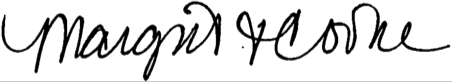 Margrit Cooke